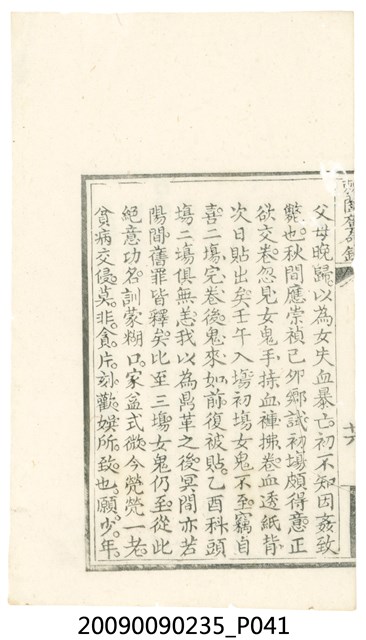 父母晚歸。以為女失血暴亡。初不知因姦致
斃也。秋間應崇禎己夘鄉試。初場頗得意。正
欲交卷。忽見女鬼手持血褲拂卷。血透紙背。
次日貼出矣。壬午入場。初場女鬼不至。竊自
喜。二場完卷後。鬼來如前。復被貼。乙酉科頭
場二場俱無恙。我以為鼎革之後。冥間亦若
陽間。舊罪皆釋矣。比至三場。女鬼仍至。從此
絕意功名。訓蒙糊口。家益式微。今煢煢一老
貧病交侵。莫非貪片刻歡娛所致也。願少年
20090090235_P041